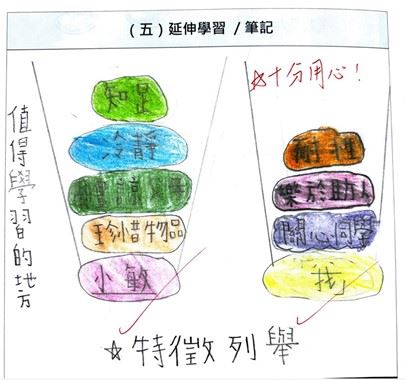 (五)延伸學習 /筆記
☆十分用心!
值得學習的地方
冷靜
珍惜物品
小敏
樂於助人
關心同學
☆特徵列舉